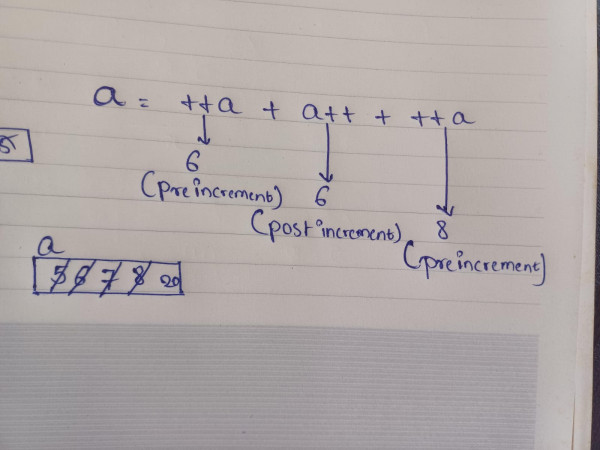 a = ++a + a++ + ++a
5
6
(preincrement)
6
(post increment)
8
(preincrement)
a
5 6 7 8 20